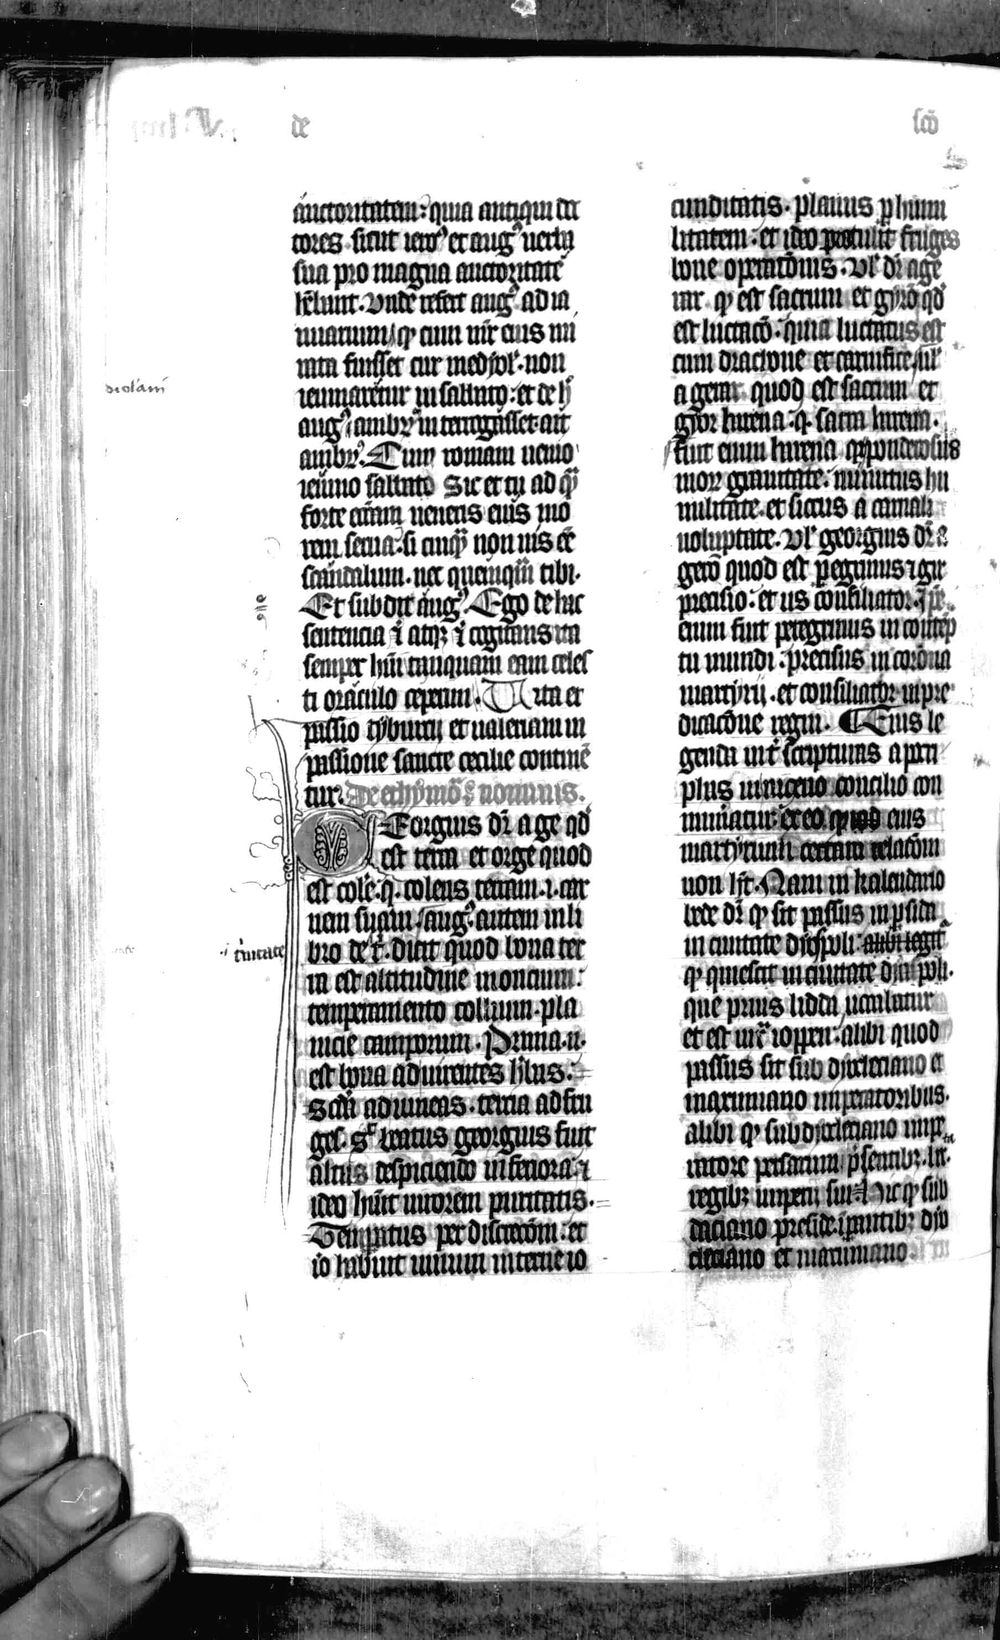 de
scō
auctoritatem: quia antiqui doc
tores sicut ieroꝰ et augꝰ verba
sua pro magna auctoritate
hēbunt. Unde refert augꝰ ad ia
nuarium qꝫ cum mr̄ eius mi
rata fuisset cur mediol̄. non
ieiunaretur in sabbato: et de hͥ
augꝰ ambrꝰ interrogasset. ait
ambrꝰ. Cum romam uenio
ieiuno sabbato Sic et tu ad qm̄
forte ecc̄iam ueneris eius mo
rem serua: si cuiqꝫ non uis eē
scandalum. nec quemqm̄ tibi.
Et subdit augꝰ. Ego de hac
sentencia ī atqꝫ ī cogitans ita
semper hui tanquam eam celes
ti oraculo ceperim. Vita et
passio tyburcij et ualeriani in
passione sancte cecilie continē
tur. De ethymoꝰ nominis.
Georgius dr̄ a ge qd̄
est terra et orge quod
est colē. q. colens terram. i. car
nem suam. augꝰ autem in li
bro de t͛. dicit quod bona ter
ra est altitudine moncium:
temperamento collium. pla
nicie camporum. Prima. n.
est bona ad uirentes hb̄as:
Scd̄a ad uineas. tercia ad fru
ges. Sꝫ beatus georgius fuit
altus despiciendo inferiora. et
ideo huit uirorem puritatis.
Temperatus per discrecōm. et
iō habuit uinum interne io
diolani
t͛nitate
cunditatis. planus ꝑ humi
litatem: et ideo protulit fruges
bone operacōnis. Ul̄ dr̄ a ge
rar qꝫ est sacrum et gyrō qd̄
est luctacō. quia luctatus est
cum dracone et carnifice. ul̄
a gerar quod est sacrum et
gyor harena. q. sacra harena.
fuit enim harena qꝫ ponderosus
morꝫ grauitate. minutus hu
militate. et siccus a carnali
uoluptate. Ul̄ georgius dr̄ a
gerō quod est peregrinus ⁊ gir
precisio: et us consiliator. ip̄e
enim fuit peregrinus in contēp
tu mundi: precisus in corona
martyrij. et consiliator in pre
dicacōne regni. Eius le
genda int͛ scripturas apocri
phas in niceno concilio con
numeratur ex eo qꝫ eius
martyrium certam relacōm
non hꝫt. Nam in kalendario
bede dr̄ qꝫ sit passus in persida
in ciuitate dyospoli: alibi legit͛
qꝫ quiescit in ciuitate dyaspoli.
que prius lidda uocabatur
et est iux̄ ioppen: alibi quod
passus sit sub dyocleciano et
maximiano imperatoribus.
alibi qꝫ sub dyocleciano impe
ratore persarum pn̄tibꝫ. lxx.
regibꝫ imperii sui. Hic qꝫ sub
daciano preside. imperantibꝫ dyo
cleciano et maximiano